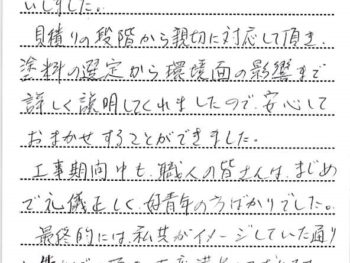 いしました。
見積りの段階から親切に対応して頂き、
塗料の選定から環境面の影響まで
詳しく説明してくれましたので、安心して
おまかせすることができました。
工事期間中も、職人の皆さんは、まじめ
で礼儀正しく好青年の方ばかりでした。
最終的には、私共がイメージしていた通り